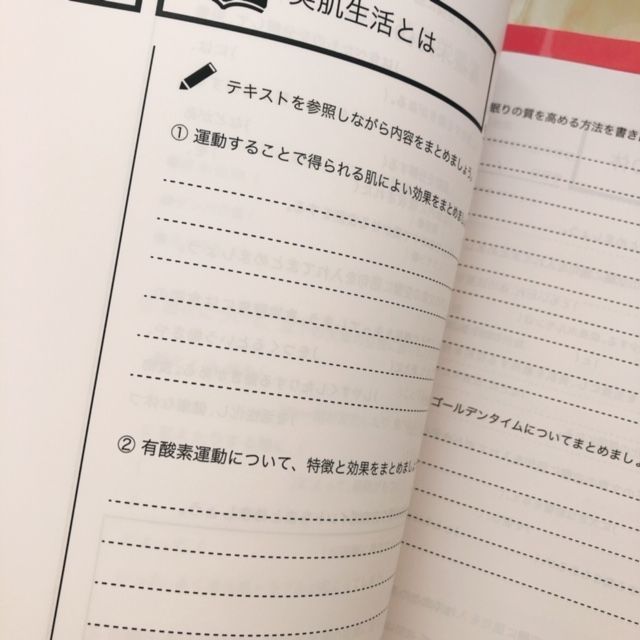 美肌生活とは
テキストを参照しながら内容をまとめましょう。
① 運動することで得られる肌によい効果をまとめまし
② 有酸素運動について、特徴と効果をまとめまし
眠りの質を高める方法を書き
ゴールデンタイムについてまとめましょ